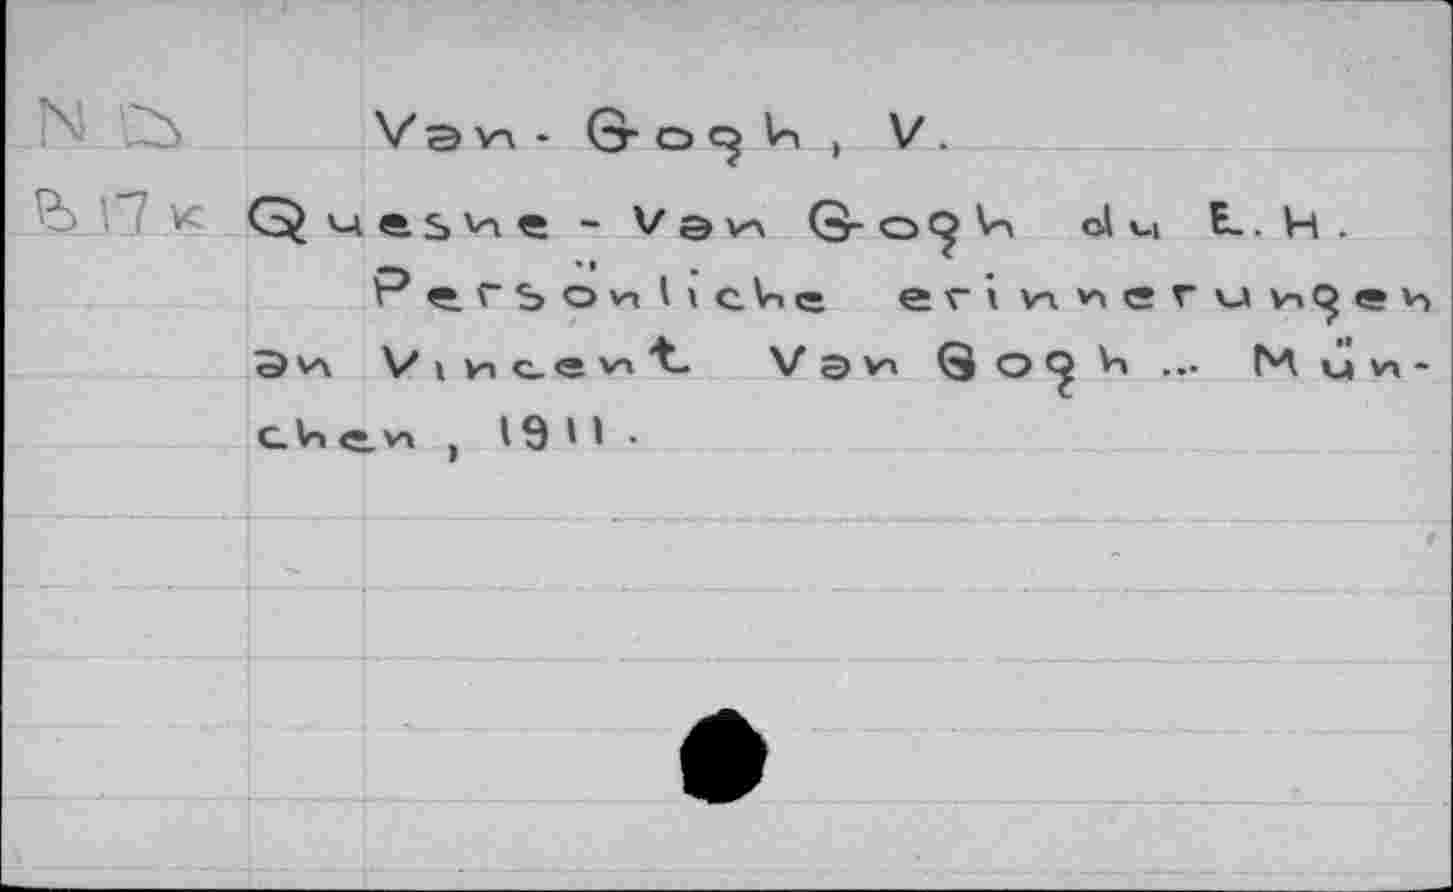 ND Van-Gogh, V.
B17k Quesne-Van Gogh du E.H.
Persönliche erinnerungen
an Vincent Van Gogh ... Mün-
chen, 1911.